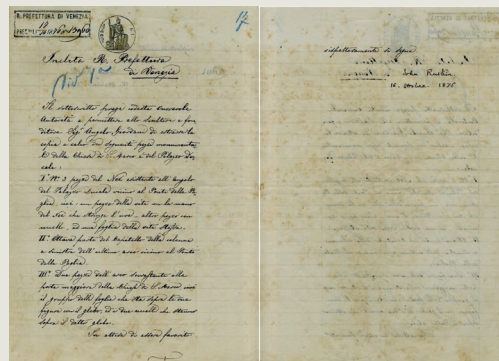 R. PREFETTURA DI VENEZIA
17
Inclita R. Prefettura
di Venezia
Il sottoscritto prega codesta onorevole
Autorità a permettere allo Scultore e for
matore Sig. Angelo Giordani di estrarre la
copia a calco dei seguenti pezzi monumenta
li della Chiesa di S. Marco e del Palazzo Du
cale:
I° N° 3 pezzi del Noè esistente all'Angolo
del Palazzo Ducale vicino al Ponte della Pa
glia, cioè: un pezzo della vite con la mano
del Noè che stringe l'uva - altro pezzo con
uccelli, ed una foglia della vite stessa.
II° Ottava parte del Capitello della colonna
a sinistra dell'ultimo arco vicino al Ponte
della Paglia.
III° Due pezzi dell'arco sovrastante alla
porta maggiore della Chiesa di S. Marco cioè
il gruppo delle foglie che sta sopra le due
figure con il globo, ed i due uccelli che stanno
sopra il detto globo.
In attesa di essere favorito
rispettosamente di
John Ruskin
16. 1876